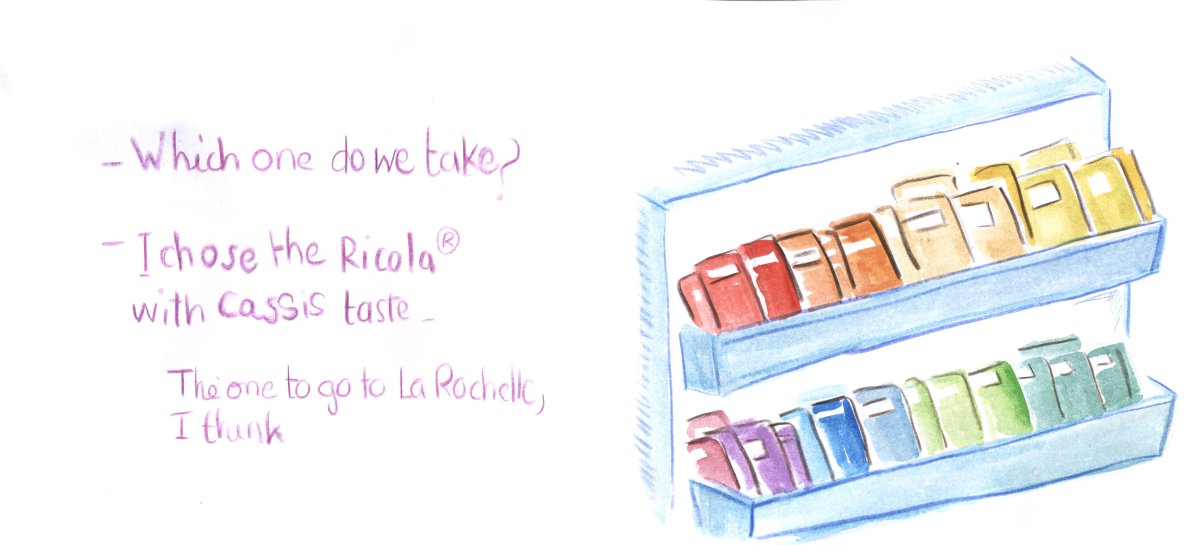 - Which one do we take?
- I chose the Ricola®
with cassis taste -
The one to go to La Rochelle,
I think